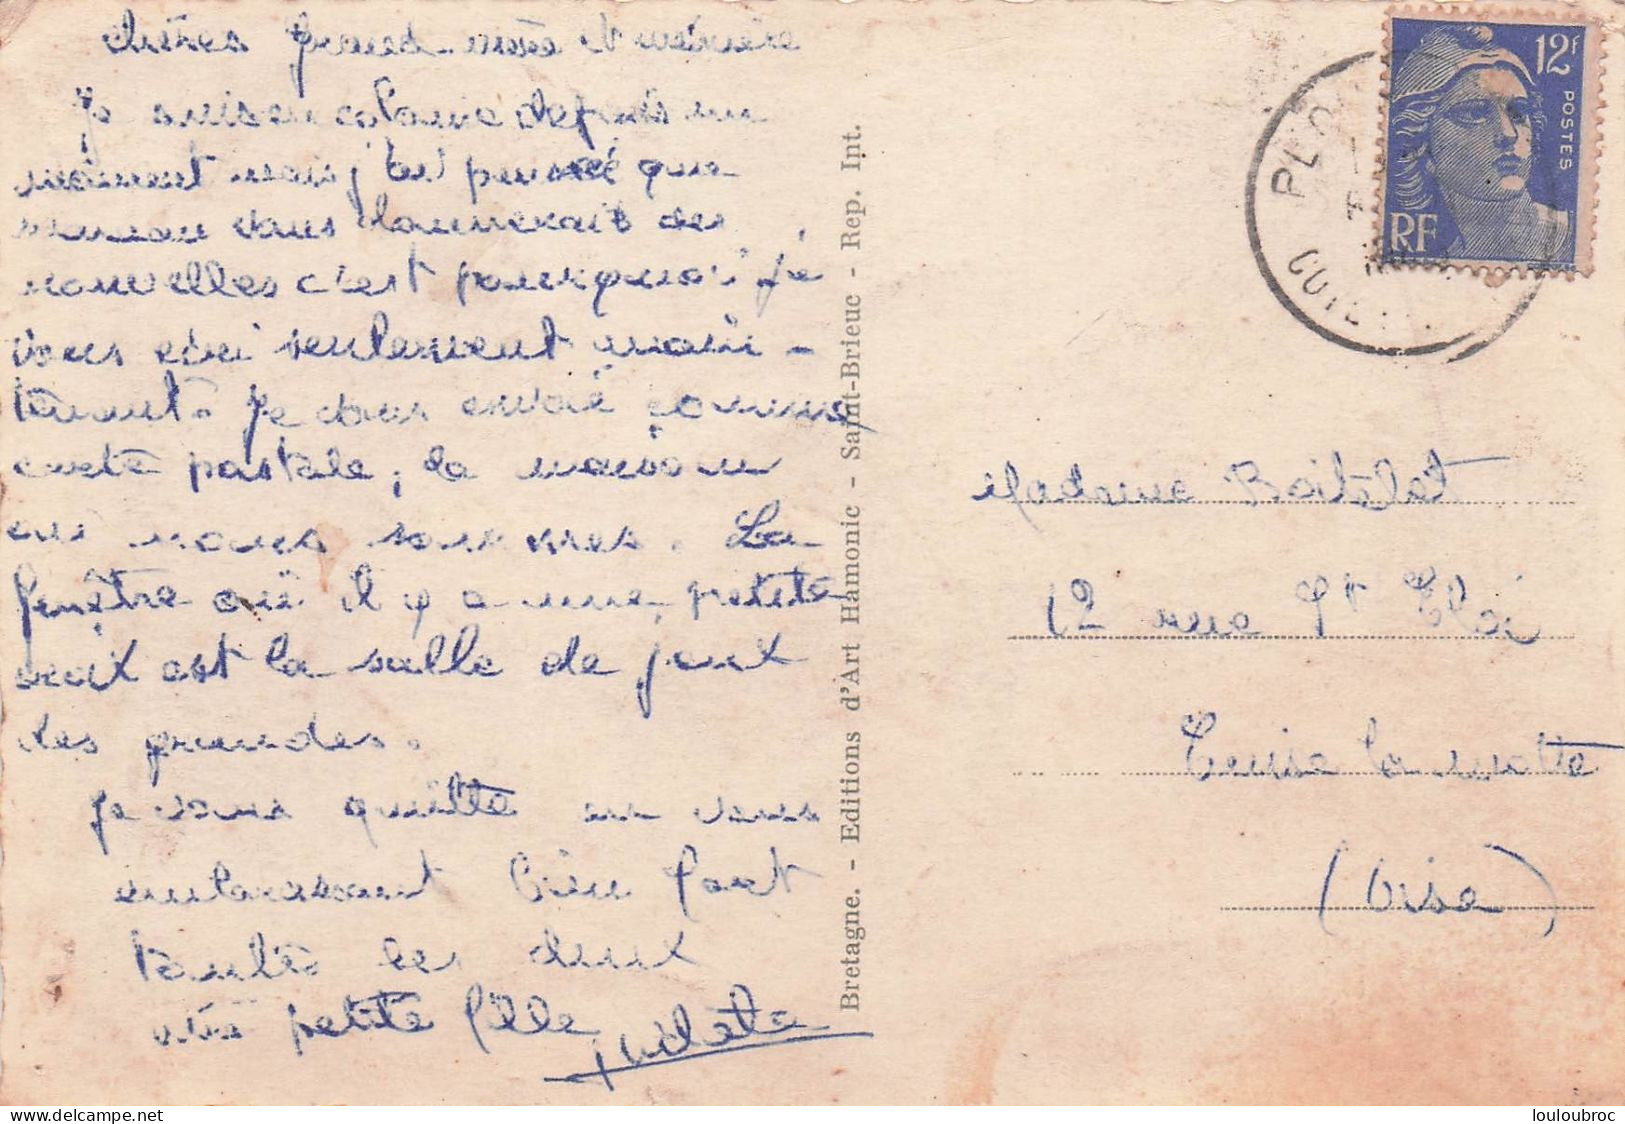 chères grand-mère et mémère
Je suis en colonie depuis un
moment mais j'ai pensé que
maman vous donnerait des
nouvelles c'est pourquoi je
vous écri seulement main-
tenant. Je vous envoie comme
carte postale, la maison
où nous sommes. La
fenêtre où il y a une petite
croix est la salle de jeux
des grandes.
Je vous quitte en vous
embrassant bien fort
toutes les deux
votre petite fille
Bretagne. - Editions d'Art Hamonic - Saint-Brieuc - Rep. Int.
PLO
COTE
12F
POSTES
RF
Madame Boitelet
12 rue St Eloi
la motte
(Oise)
louloubroc